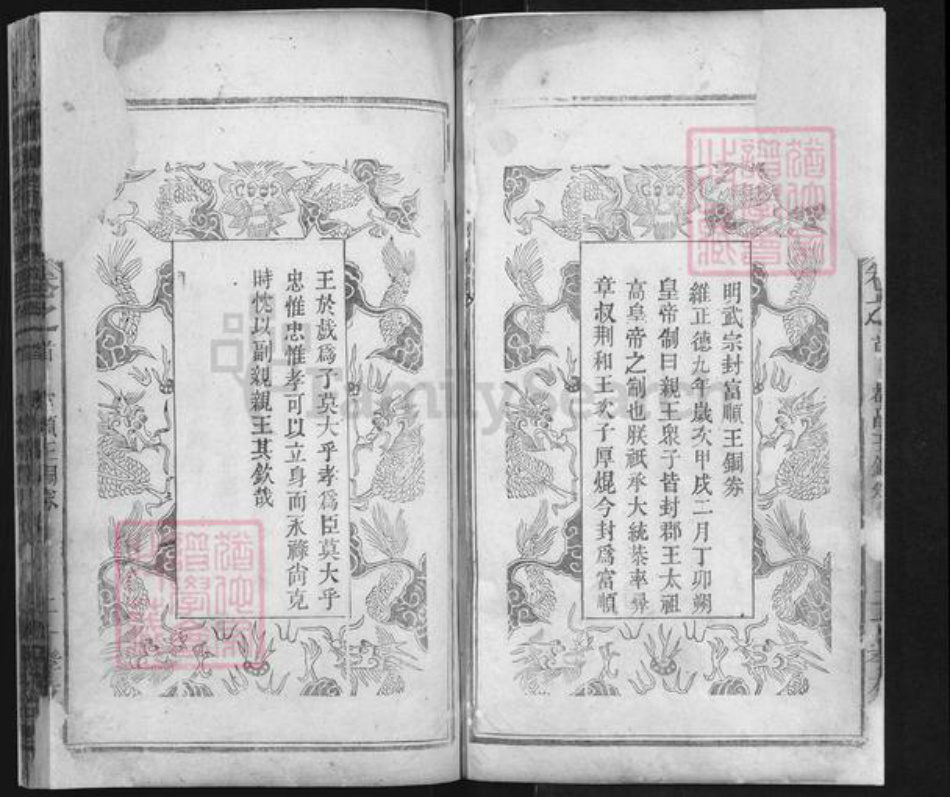 明武宗封富順王銅券
維正德九年歲次甲戌二月丁卯朔
皇帝制曰親王衆子皆封郡王太祖
高皇帝之制也朕祇承大統恭率彛
章叔荆和王次子厚焜今封爲富順
王於戲爲子莫大乎孝爲臣莫大乎
忠惟忠惟孝可以立身而永祿尙克
時忱以副親親王其欽哉
卷之首
FamilySearch